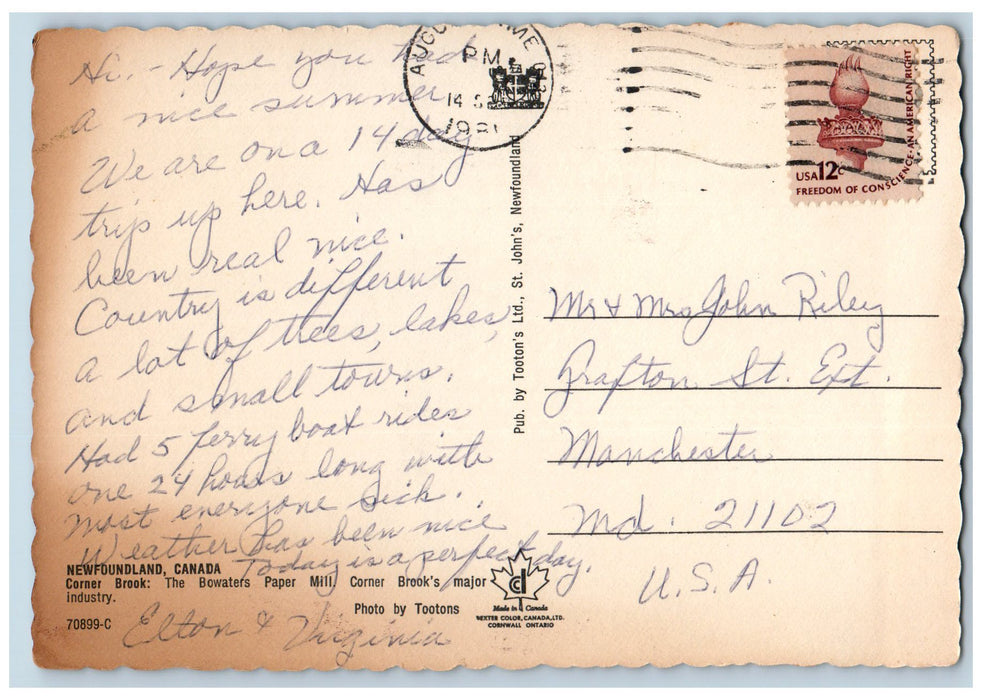 Hi. - Hope you had
a nice summer
We are on a 14 day
trip up here. Has
been real nice.
Country is different
a lot of trees, lakes,
and small towns.
Had 5 ferry boat rides
one 24 hours long with
most everyone sick.
Weather has been nice
Today is a perfect day.
Elton & Virginia
NEWFOUNDLAND, CANADA
Corner Brook: The Bowaters Paper Mill, Corner Brook's major
industry.
Photo by Tootons
70899-C
Pub. by Tooton's Ltd., St. John's, Newfoundland
Made in Canada
DEXTER COLOR, CANADA, LTD.
CORNWALL ONTARIO
PM
14
USA 12c
FREEDOM OF CONSCIENCE-AN AMERICAN RIGHT
Mr & Mrs John Riley
Grafton St. Ext.
Manchester
Md. 21102
U.S.A.